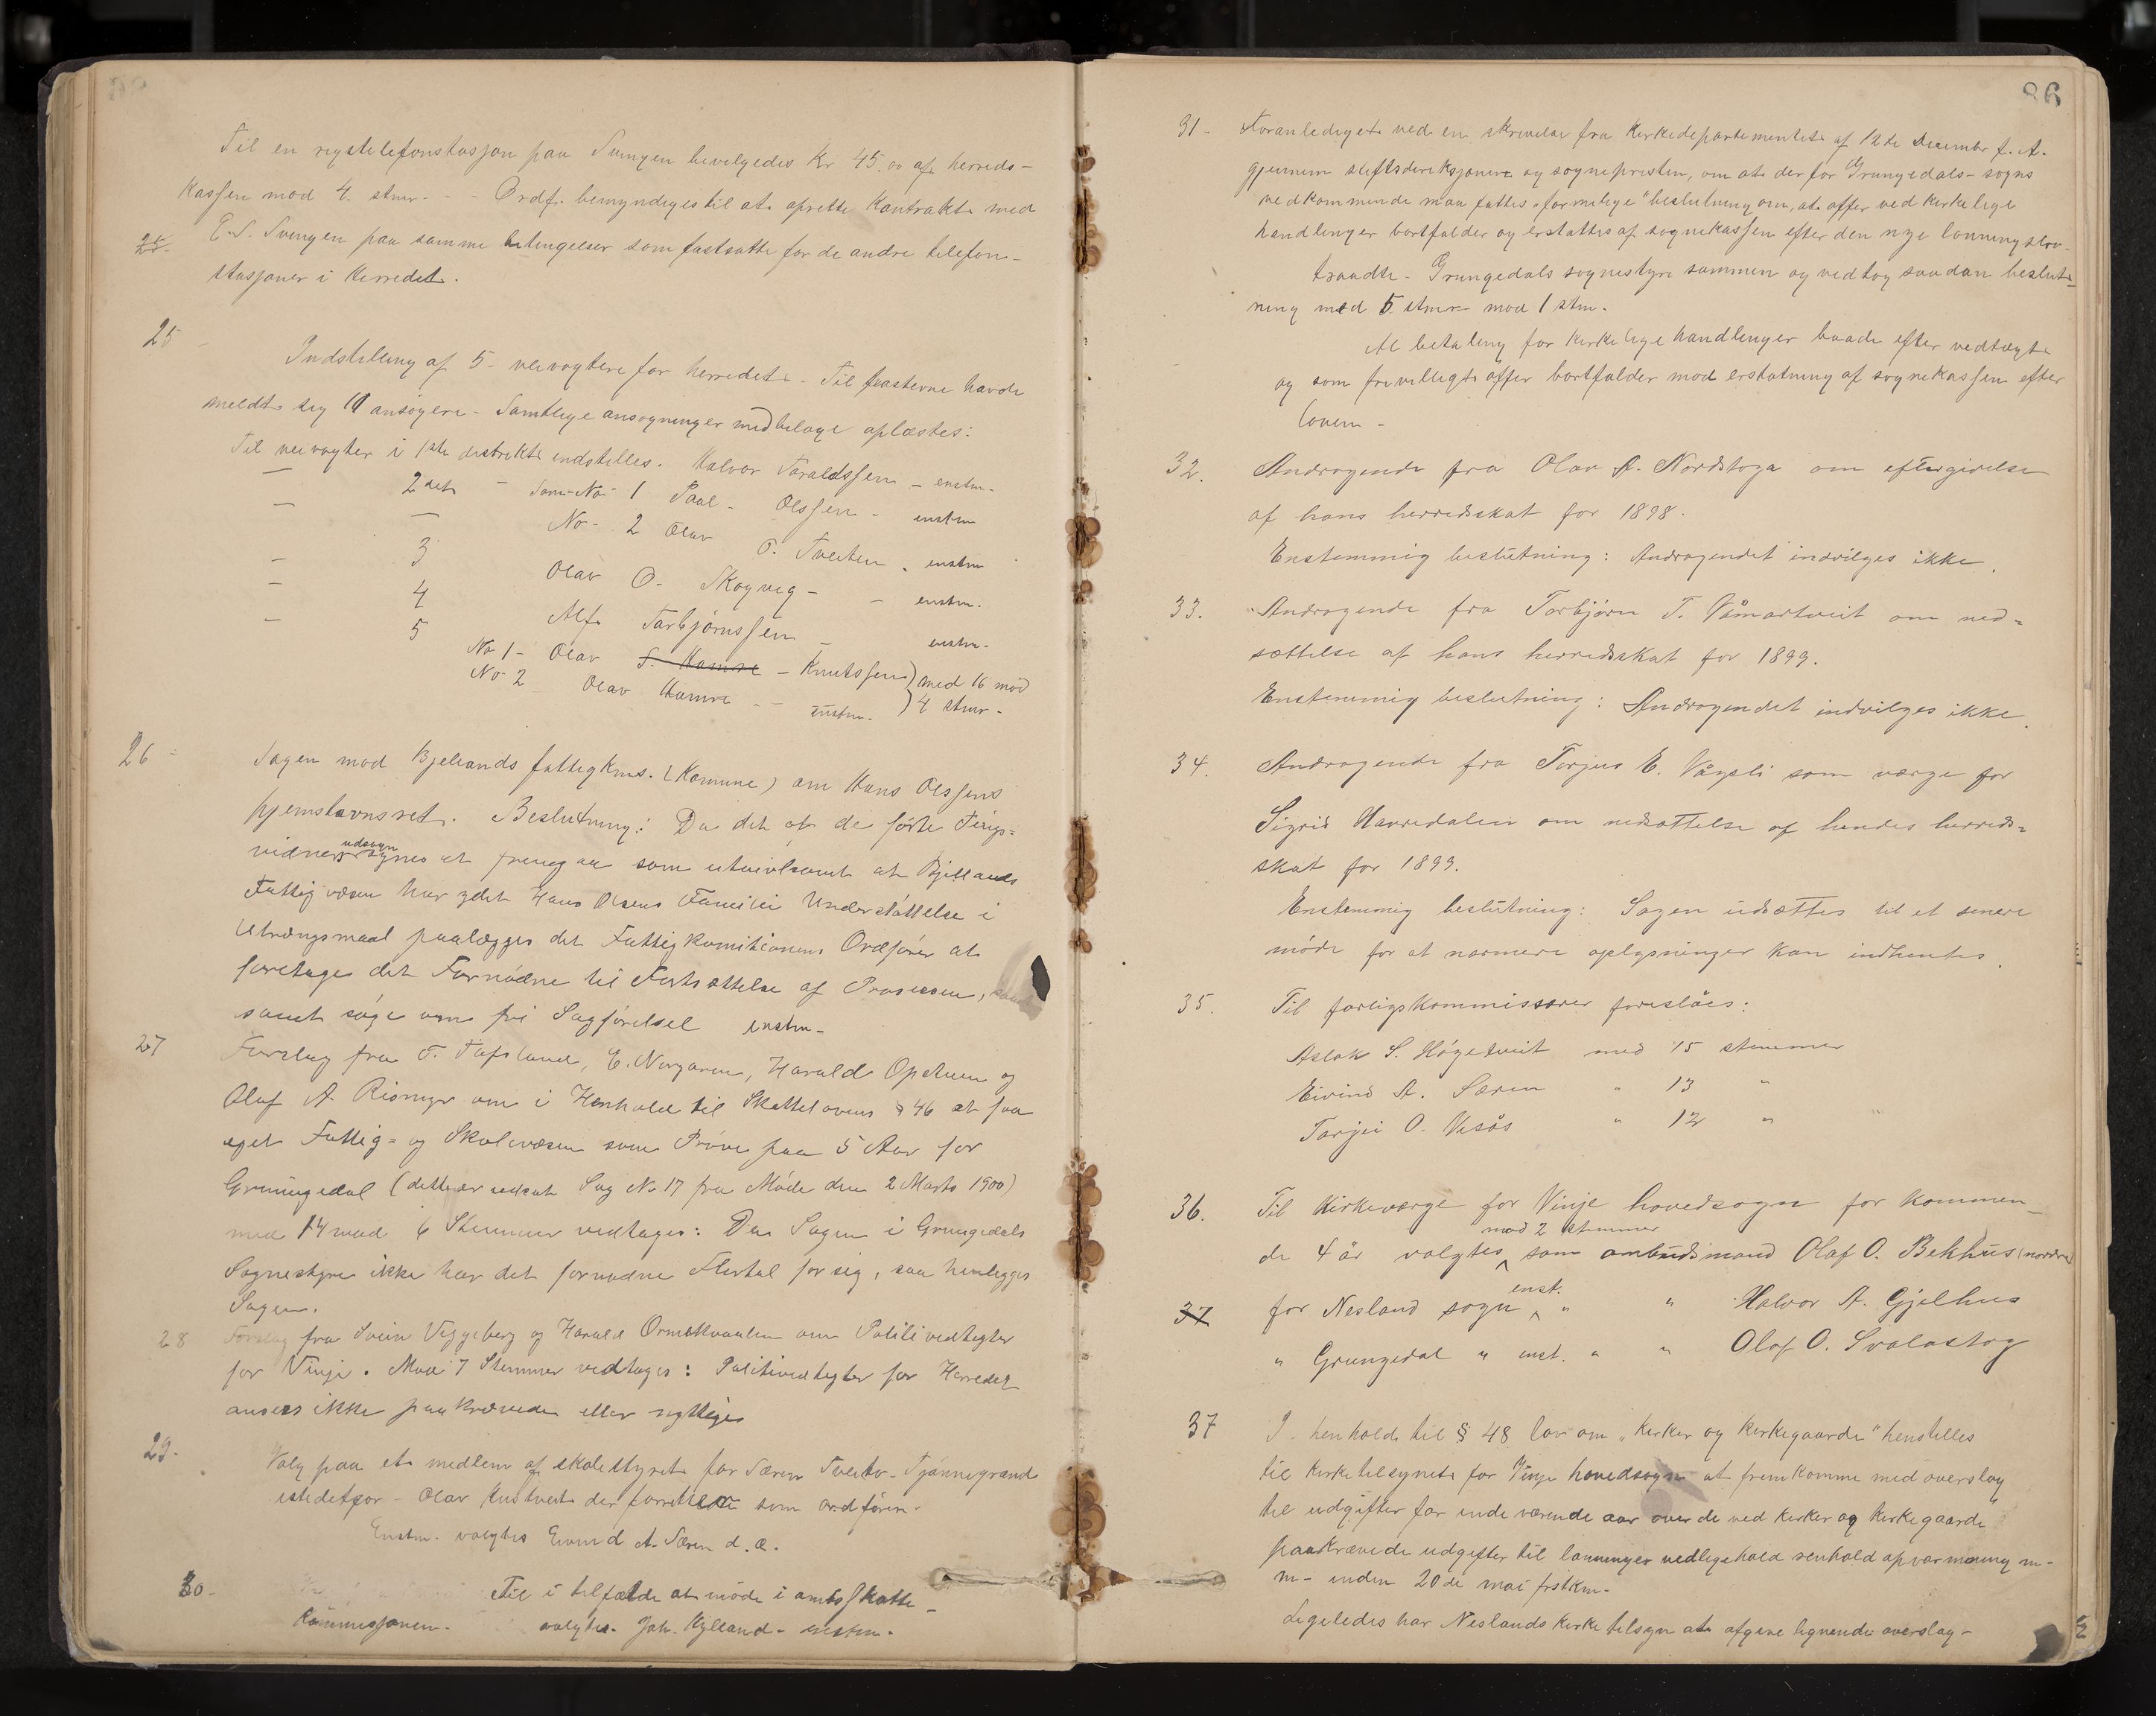 Til en rigstelefonstasjon paa Svingen bevilgedes Kr 45.00 af herreds-
kassen mod 4. stmr. - - Ordf. bemyndiges til at oprette Kontrakt med
25 E. S. Svingen paa samme betingelser som fastsatte for de andre telefon-
stasjoner i Herredet.
25 -
Indstilling af 5 - veivogtere for herredet. - Til posterne havde
meldt sig 10 ansøgere - Samtlige ansøgninger med bilage oplæstes:
Til veivogter i 1ste distrikt indstilles. Halvor Taraldssen - enstm-
— 2det - Som No- 1 Paal - Olssen - enstm
— — No - 2 Olav T. Tveiten - enstm
— 3 Olav O. Skogveg - - enstm.
— 4 Alf Tarbjørnssen - enstm-
— 5 No 1 - Olav S. Hamre - Knutssen med 16 mod
No 2 Olav Hamre - - enstm. 4 stmr -
26 - Sagen mod Bjellands fattigkms. (Komune) om Hans Olssens
hjemstavnsret. Beslutning: Da det af de førte Tings=
vidners udsagn synes at fremgaa som utvivlsomt at Bjellands
Fattigvæsen har ydet Hans Olsens Familie Understøttelse i
Utrængsmaal paalægges det Fattigkomitionens Ordfører at
foretage det Fornødne til Fortsættelse af Prosessen,
samt søge om fri Sagførelsel enstm-
27 Forslag fra T. Tafsland, E. Norgaren, Harald Opstuen og
Olaf A Rismyr om i Henhold til Skattelovens § 46 at faa
eget Fattig= og Skolevæsen som Prøve paa 5 Aar for
Grungedal (dette er udsat Sag No 17 fra Møde den 2 Marts 1900)
med 14 mod 6 Stemmer vedtages: Da Sagen i Grungedals
Sognestyre ikke har det fornødne Flertal for sig, saa henlegges
Sagen.
28 Forslag fra Svein Veggeberg og Harald Ormskvaalen om Politivedtegter
for Vinje. Mod 7 Stemmer vedtoges: Politivedtegter for Herredet
ansees ikke paakrævede eller nyttige
29. Valg paa et medlem af skolestyret for Særen Tveito - Tjønnegrand
istedetfor - Olav Kustveit der foretillea som ordfører.
Enstm. valgtes Eivind A. Særen d. æ.
30 - Til i tilfælde at møde i amtsskatte-
kommissjonen - valgtes - Joh. Kylland - enstm.
86
31 - Foranlediget ved en skrivelse fra Kirkedepartementet af 12te December f. A.
gjennem stiftsdireksjonen og sognepresten, om at der for Grungedals - sogns
vedkommende maa fattes "formelige" beslutning om, at offer ved kirkelige
handlinger bortfalder og erstattes af sognekassen efter den nye lønningslov-
traadte - Grungedals sognestyre sammen og vedtog saadan beslut=
ning med 5 stmr mod 1 stm.
Al betaling for kirkelige handlinger baade efter vedtægt
og som frivilligt offer bortfalder mod erstatning af sognekassen efter
loven -
32. Andragende fra Olav A. Nordstoga om eftergivelse
af hans herredsskat for 1898.
Enstemmig beslutning: Andragendet indvilges ikke.
33. Andragende fra Torbjørn T. Våmartveit om ned=
sættelse af hans herredsskat for 1899.
Enstemmig beslutning: Andragendet indvilges ikke.
34. Andragende fra Torjus E. Vågsli som værge for
Sigrid Hauredalen om nedsættelse af hendes herreds=
skat for 1899.
Enstemmig beslutning: Sagen udsættes til et senere
møde for at nærmere oplysninger kan indhentes.
35. Til forligskommissærer foreslåes:
Aslak S. Högetveit med 15 stemmer
Eivind A. Særen " 13 "
Tarjei O. Vesås " 12 "
36. Til Kirkeværge for Vinje hovedsogn for kommen-
de 4 år valgtes mod 2 stemmer som ombudsmand Olaf O. Bekhus (nordre)
37 for Nesland sogn enst. " " Halvor A. Gjelhus
" Grungedal " enst. " " Olaf O. Svalastog
37 I henhold til § 48 lov om "kirker og kirkegaarde" henstilles
til kirketilsynet for Vinje hovedsogn at fremkomme med overslag
til udgifter for indeværende aar over de ved kirker og kirkegaarde
paakrævede udgifter til lønninger vedligehold renhold opvarmning m-
m - inden 20de mai førstkm-
Ligeledes har Neslands kirketilsyn at afgive lignende overslag -